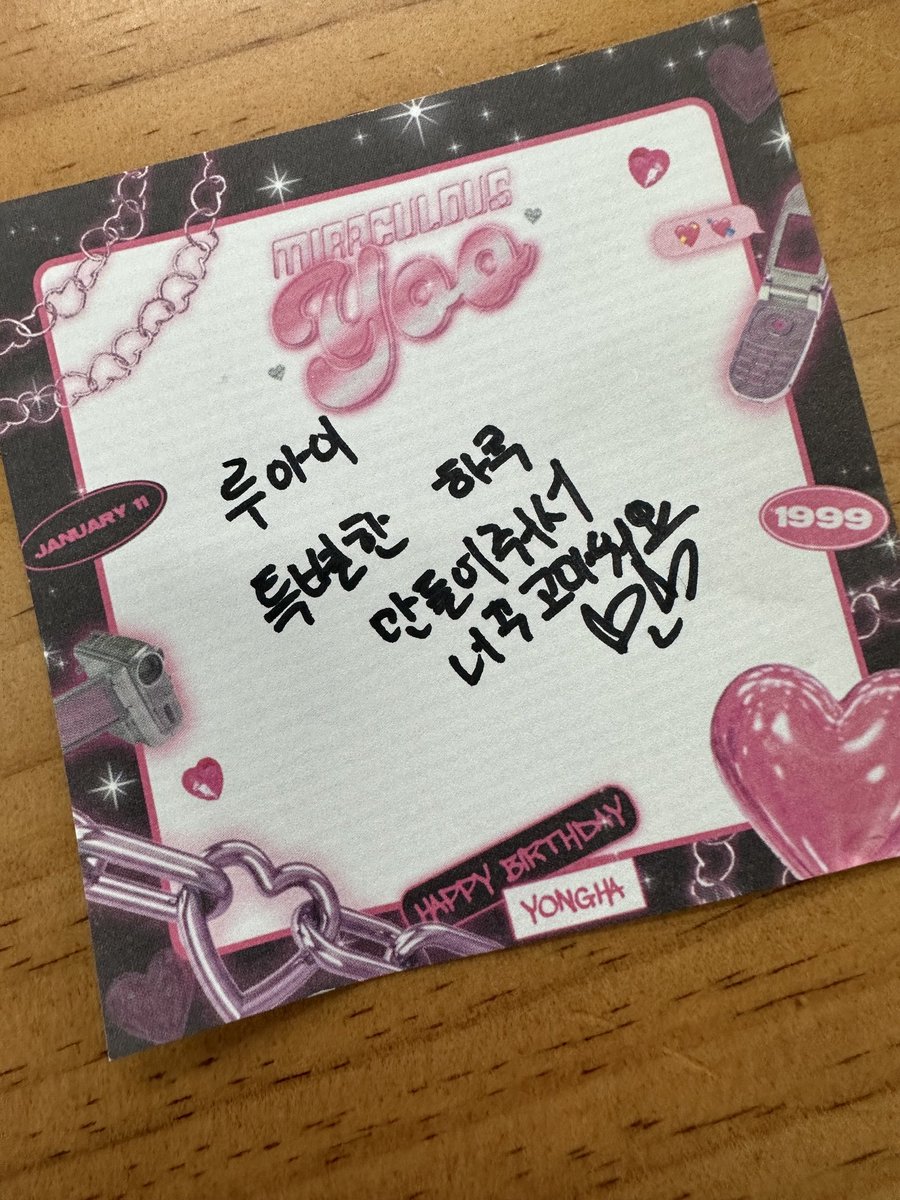 MIRACULOUS
Yoo
루아이
특별한 하루
만들어줘서
너무 고마워요
JANUARY 11
1999
HAPPY BIRTHDAY
YONGHA